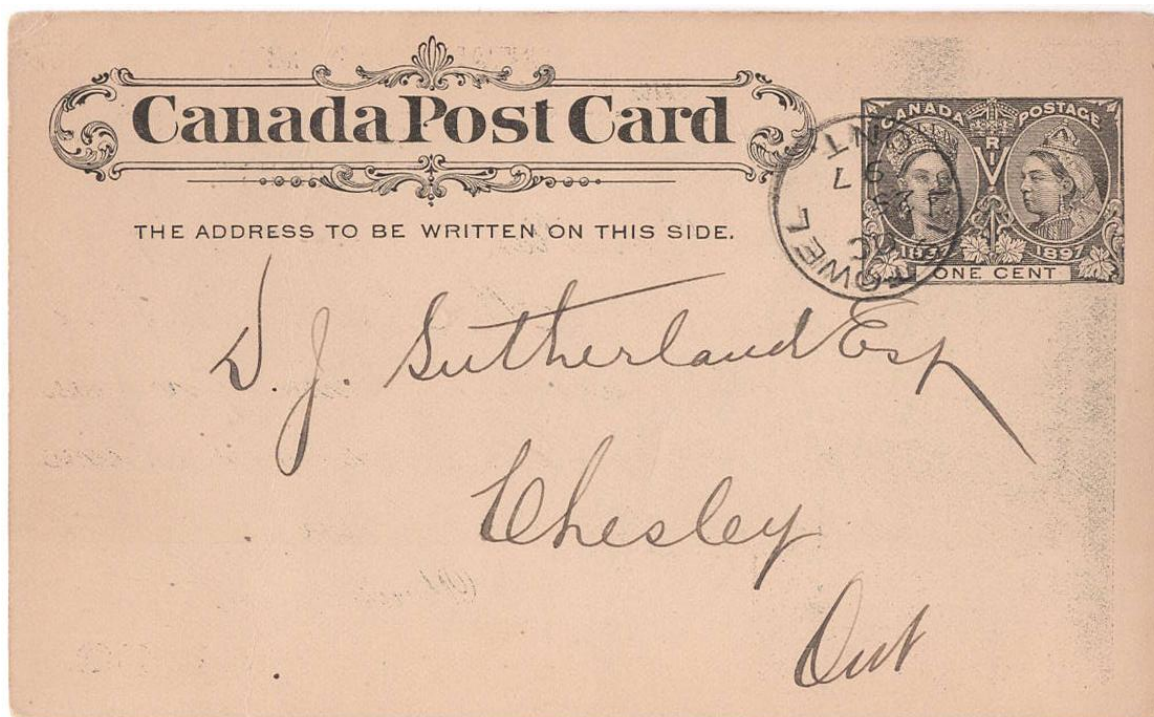 Canada Post Card
THE ADDRESS TO BE WRITTEN ON THIS SIDE.
CANADA POSTAGE
V R I
1837 1897
ONE CENT
LISTOWEL ONT
OC 29
97
D. J. Sutherland Esq
Chesley
Ont